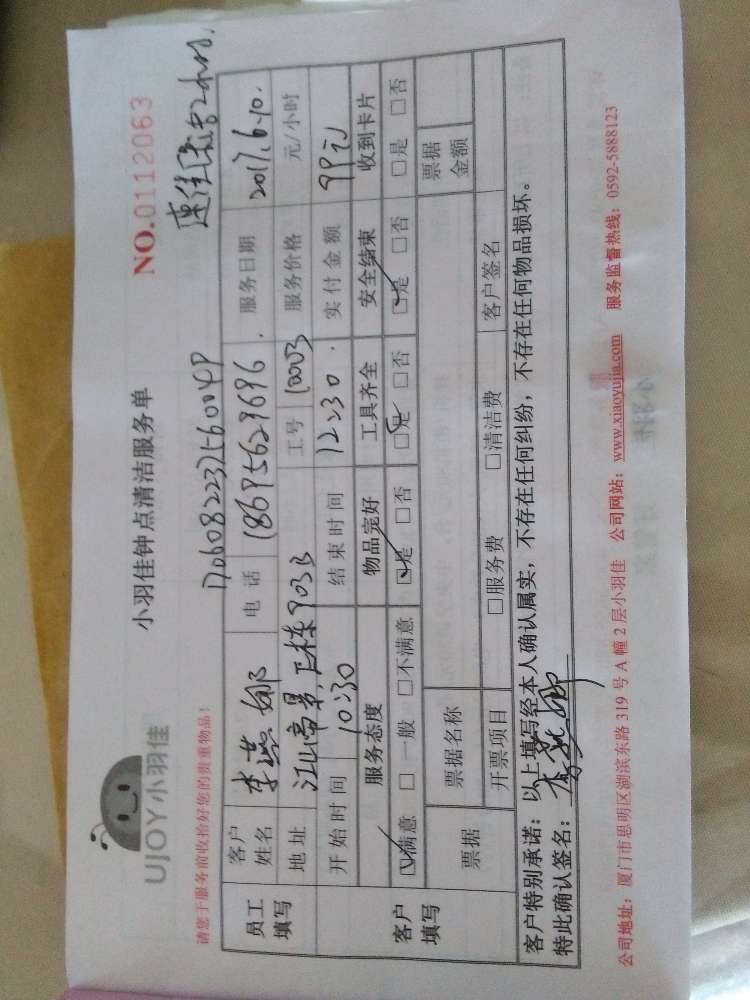 UJOY小羽佳
小羽佳钟点清洁服务单
NO.0112063
请您于服务前收拾好您的贵重物品!
员工填写
客户姓名 李燕娜 电话 18695629696 服务日期 2017.6.10.
地址 江山帝景 903B 工号 10003 服务价格 元/小时
开始时间 10:30 结束时间 12:30 实付金额 99元
客户填写
服务态度 物品完好 工具齐全 安全结束 收到卡片
☑满意 □一般 □不满意 ☑是 □否 ☑是 □否 ☑是 □否 □是 □否
票据 票据名称 票据金额
开票项目 □服务费 □清洁费 客户签名
客户特别承诺:以上填写经本人确认属实,不存在任何纠纷,不存在任何物品损坏。
特此确认签名:
公司地址:厦门市思明区湖滨东路 319 号 A 幢 2 层小羽佳 公司网站:www.xiaoyujia.com 服务监督热线:0592-5888123